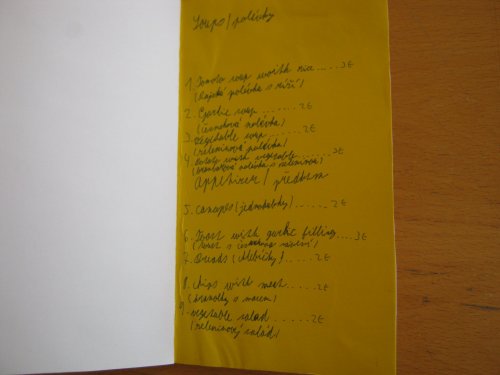 Soups/polévky
1. Tomato soup with rice.....3€
(Rajská polévka s rýží)
2. Garlic soup.......2€
(česneková polévka)
3. vegetable soup......2€
(zeleninová polévka)
4. Potato with vegetable......3€
(bramborová polévka s zeleninou)
Appetizer/předkrm
5. canapes (jednohubky)......2€
6. Toast with garlic filling....3€
(toast s česnekovou náplní)
7. (chlebíčky)......2€
8. chips with meat......2€
(s masem)
9. vegetable salad......2€
(zeleninový salád)